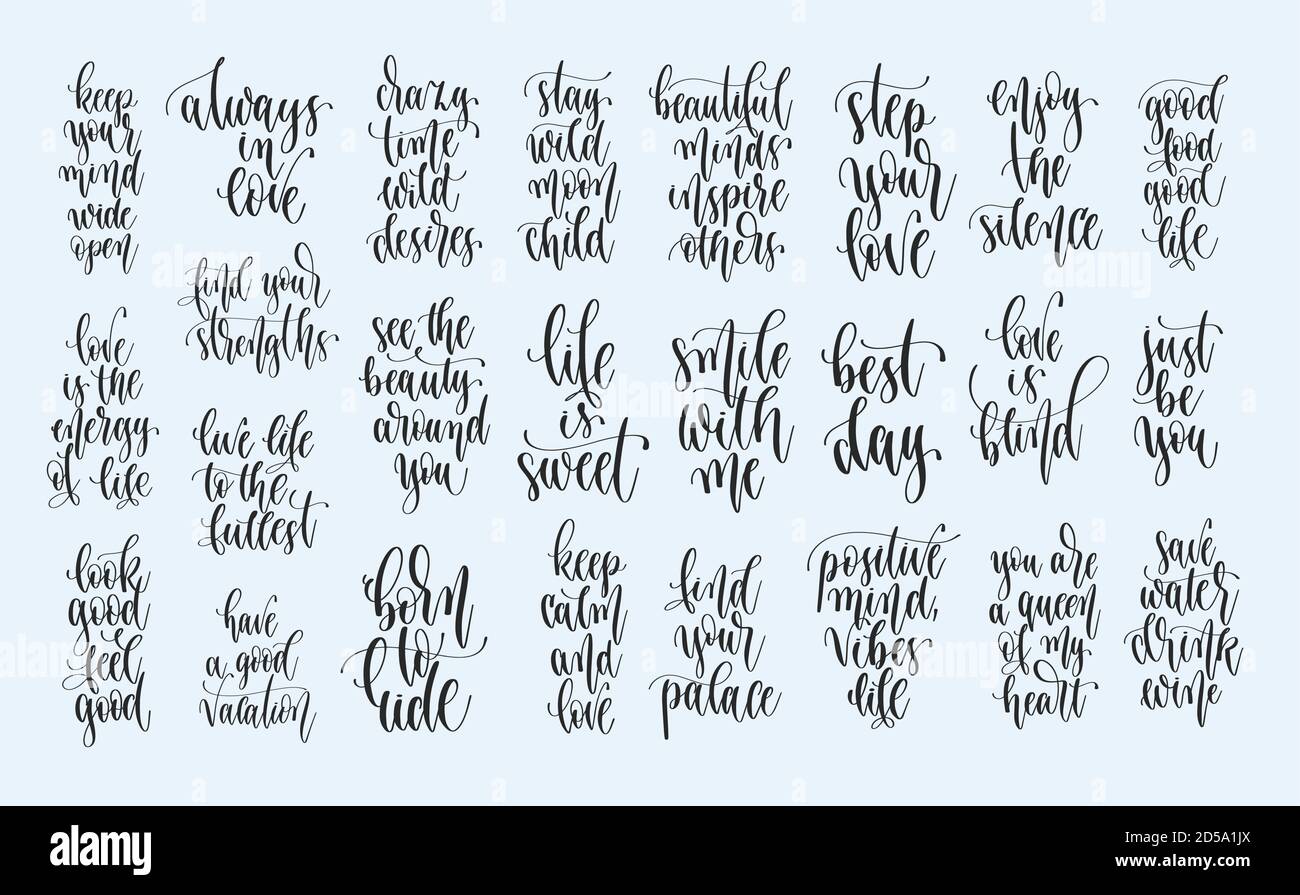 keep
your
mind
wide
open
always
in
love
crazy
time
wild
desires
stay
wild
moon
child
beautiful
minds
inspire
others
step
your
love
enjoy
the
silence
good
food
good
life
find your
strengths
love
is the
energy
of life
live life
to the
fullest
see the
beauty
around
you
life
is
sweet
smile
with
me
best
day
love
is
blind
just
be
you
look
good
feel
good
have
a good
vacation
born
to
ride
keep
calm
and
love
find
your
palace
positive
mind,
vibes
life
you are
a queen
of my
heart
save
water
drink
wine
alamy
Image ID: 2D5A1JX
www.alamy.com